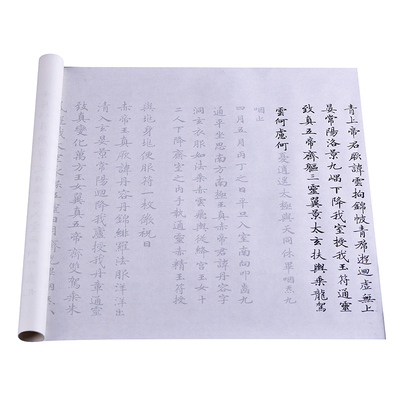 青上帝君厥諱雲拘錦帔青帬遊迴虛無上
晏常陽洛景九㬂下降我室授我玉符通靈
致真五帝齊軀三靈翼景太玄扶輿乘龍駕
雲何慮何憂遨遊太極與天同休畢咽炁九
咽止
四月五月丙丁之日平旦入室南向叩齒九
通平坐思南方南極玉真赤帝君諱丹容字
洞玄衣服如法乘赤雲飛輿從絳宮玉女十
二人下降齋室之內手執通靈赤精玉符授
與地身地便服符一枚微祝曰
赤帝玉真厥諱丹容丹錦緋羅法服洋洋出
清入玄晏景常陽迴降我廬授我丹章通靈
致真變化萬方玉女翼真五帝齊雙駕乘朱